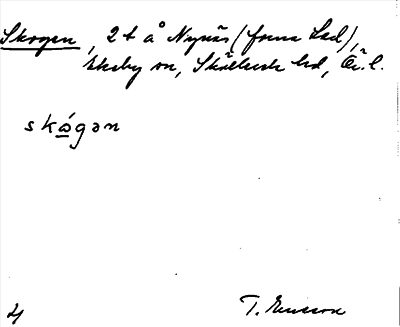 Skogen, 2 t å Nynäs (förra Lad),
Ekeby sn, Skyllersta hd, Ör. l.
skógən
T. Ericsson